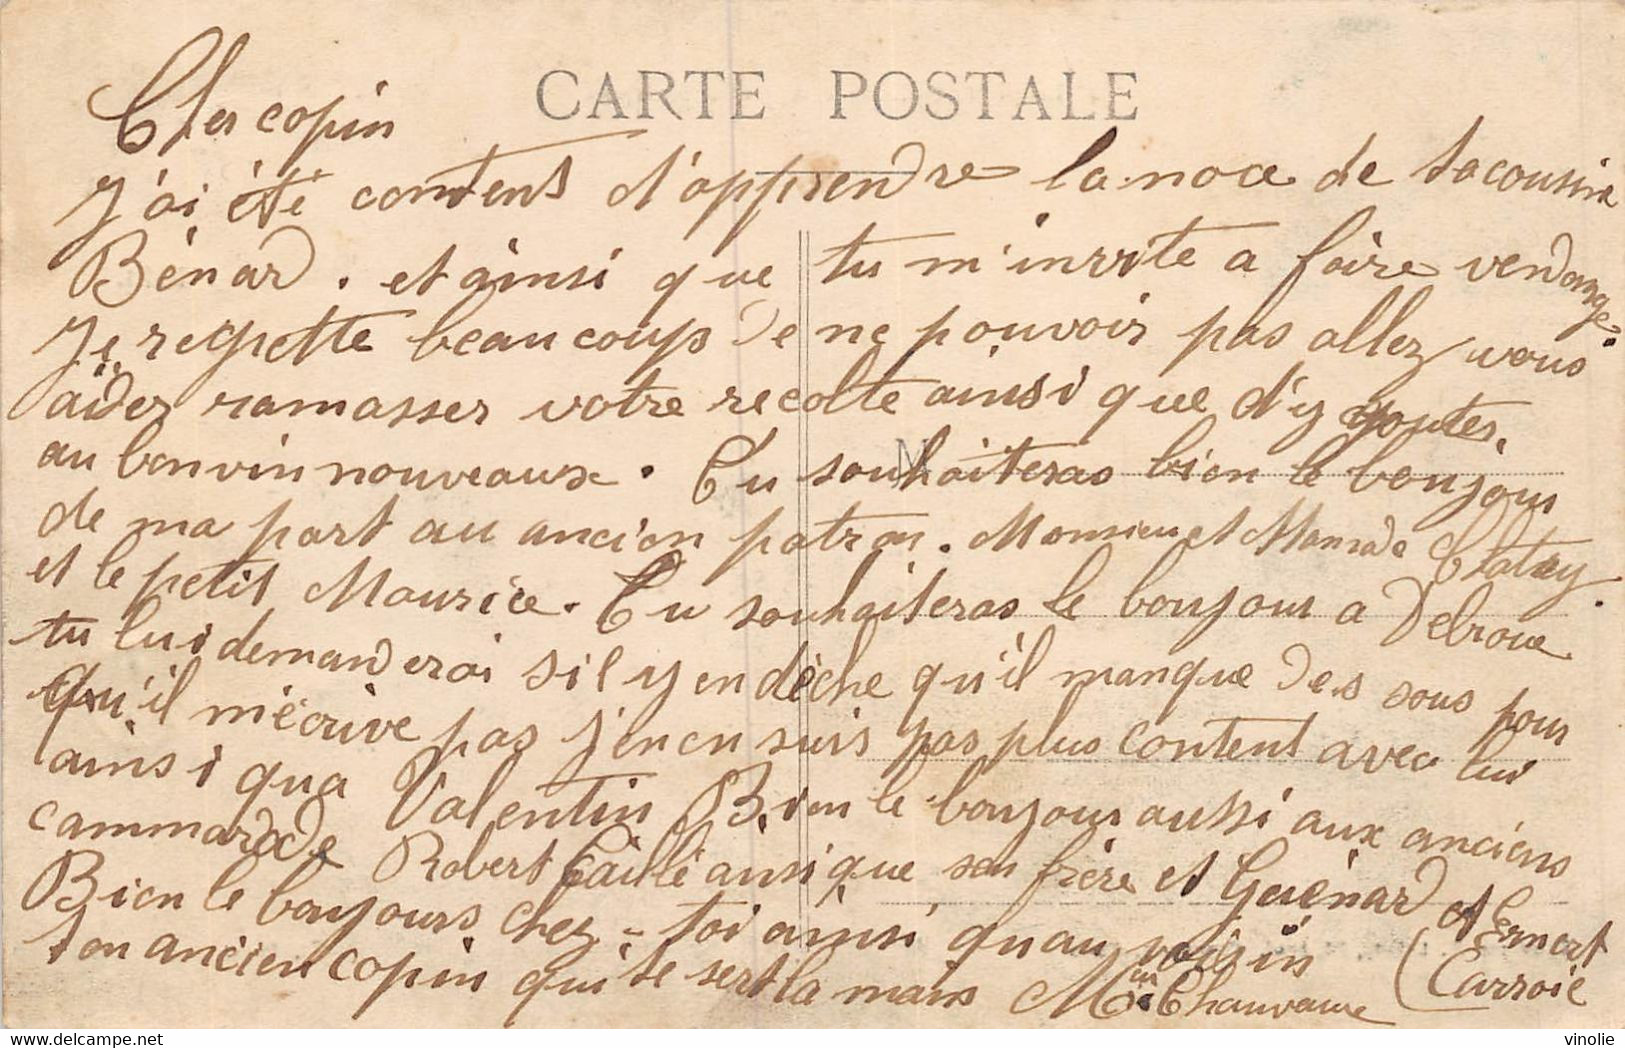 CARTE POSTALE
Cher copin
J'ai été contens d'apprendre la noce de ta cousine
Bénard. et ainsi que tu m'invite a faire vendange.
Je regrette beaucoups de ne pouvoir pas allez vous
aider ramasser votre recolte ainsi que d'y gouter.
au bon vin nouveaux. Tu souhaiteras bien le bonjour
de ma part au ancien patron. Monsieur et Mamade
et le petit Maurice. Tu souhaiteras le bonjour a Debroue
tu lui demanderai s'il y en dèche qu'il manque des sous pour
qu'il m'écrive pas j'en en suis pas plus content avec lui
ainsi qua Valentin Bien le bonjour aussi aux anciens
cammarade Robert Caillé ainsi que son frère et Guénard et Ernert
Bien le bonjours chez-toi ainsi quau voisin Carroie
ton ancien copin qui te sert la main Chauvaux
vinolie